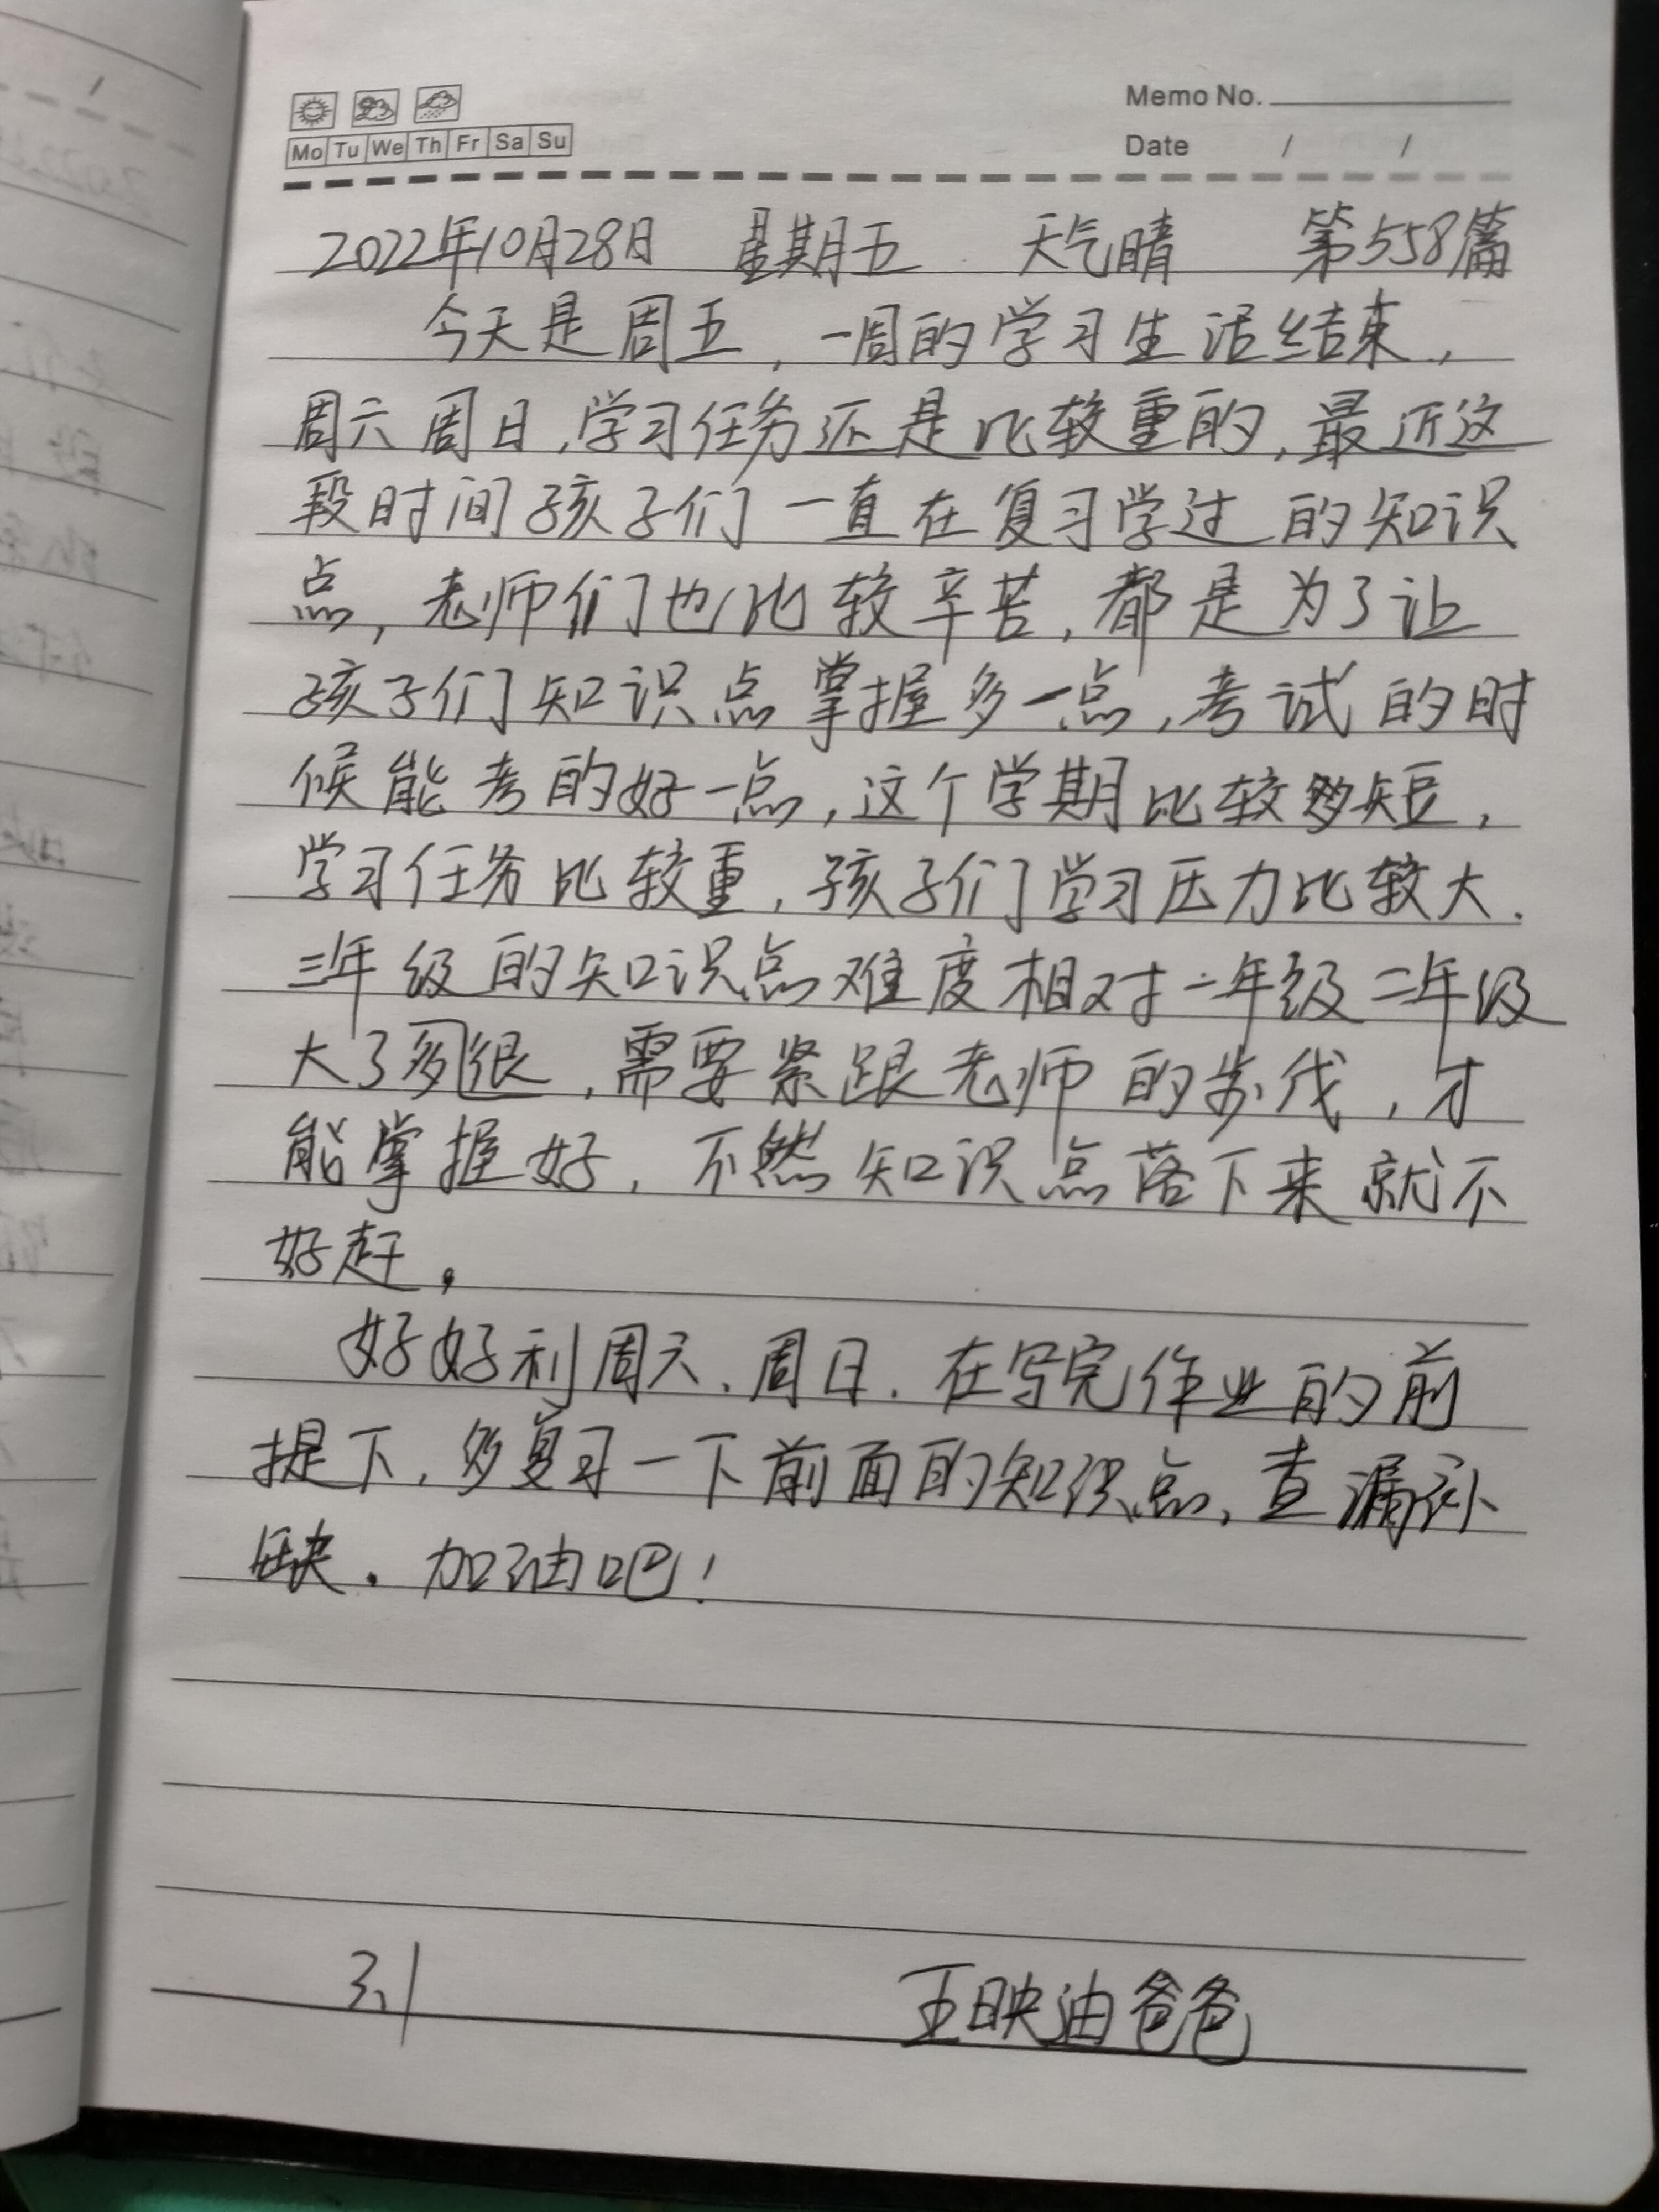 Memo No.
Mo Tu We Th Fr Sa Su
Date / /
2022年10月28日 星期五 天气晴 第558篇
今天是周五，一周的学习生活结束，
周六周日，学习任务还是比较重的，最近这
段时间孩子们一直在复习学过的知识
点，老师们也比较辛苦，都是为了让
孩子们知识点掌握多一点，考试的时
候能考的好一点，这个学期比较短，
学习任务比较重，孩子们学习压力比较大.
三年级的知识点难度相对一年级二年级
大了多很，需要紧跟老师的步伐，才
能掌握好，不然知识点落下来就不
好赶。
好好利周六、周日.在写完作业的前
提下，多复习一下前面的知识点，查漏补
缺.加油吧！
王映油爸爸